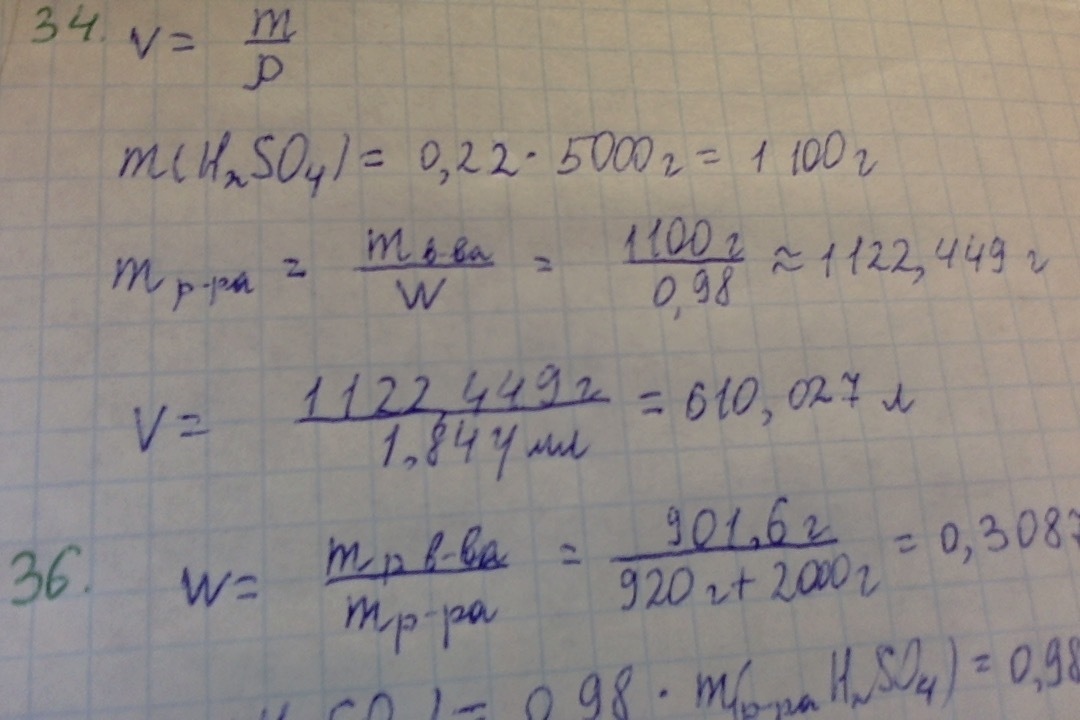 34. V = m/ρ
m(H₂SO₄) = 0,22 · 5000г = 1 100г
m р-ра = m в-ва/W = 1100г/0,98 ≈ 1122,449 г
V = 1122,449г/1,84 г/мл = 610,027 л
36. W = m р в-ва/m р-ра = 901,6г/920г + 2000г = 0,3087
SO₄) = 0,98 · m(р-ра H₂SO₄) = 0,98